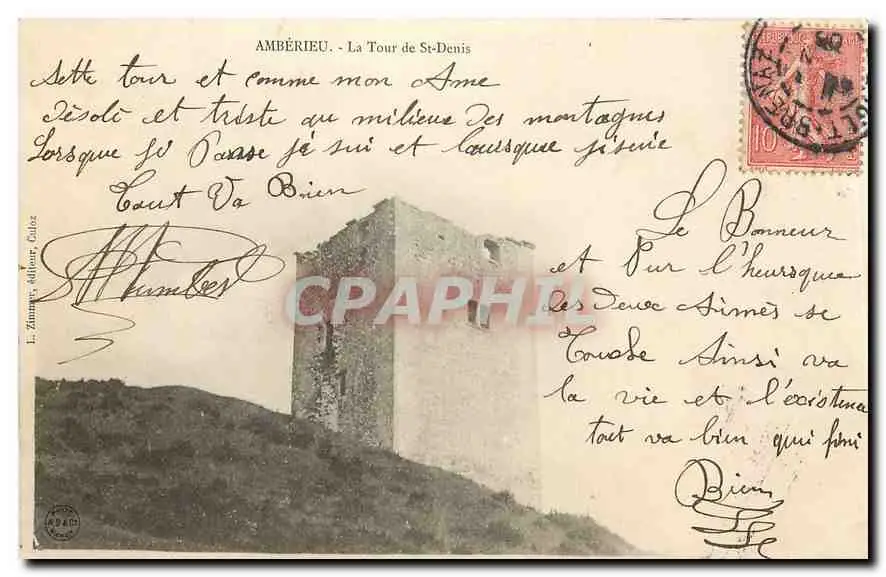 AMBÉRIEU. - La Tour de St-Denis
Sette tour et comme mon Ame
désolé et triste au milieu des montagnes
Lorsque je Panse je sui et lorsque jiserie
tout Va Bien
Humbert
Le Bonneur
et Pur l'heursque
les deux Aimès se
touche Ainsi va
la vie et l'éxistence
tout va bien qui fini
Bien
L. Zimmer, éditeur, Culoz
CPAPHIL
10